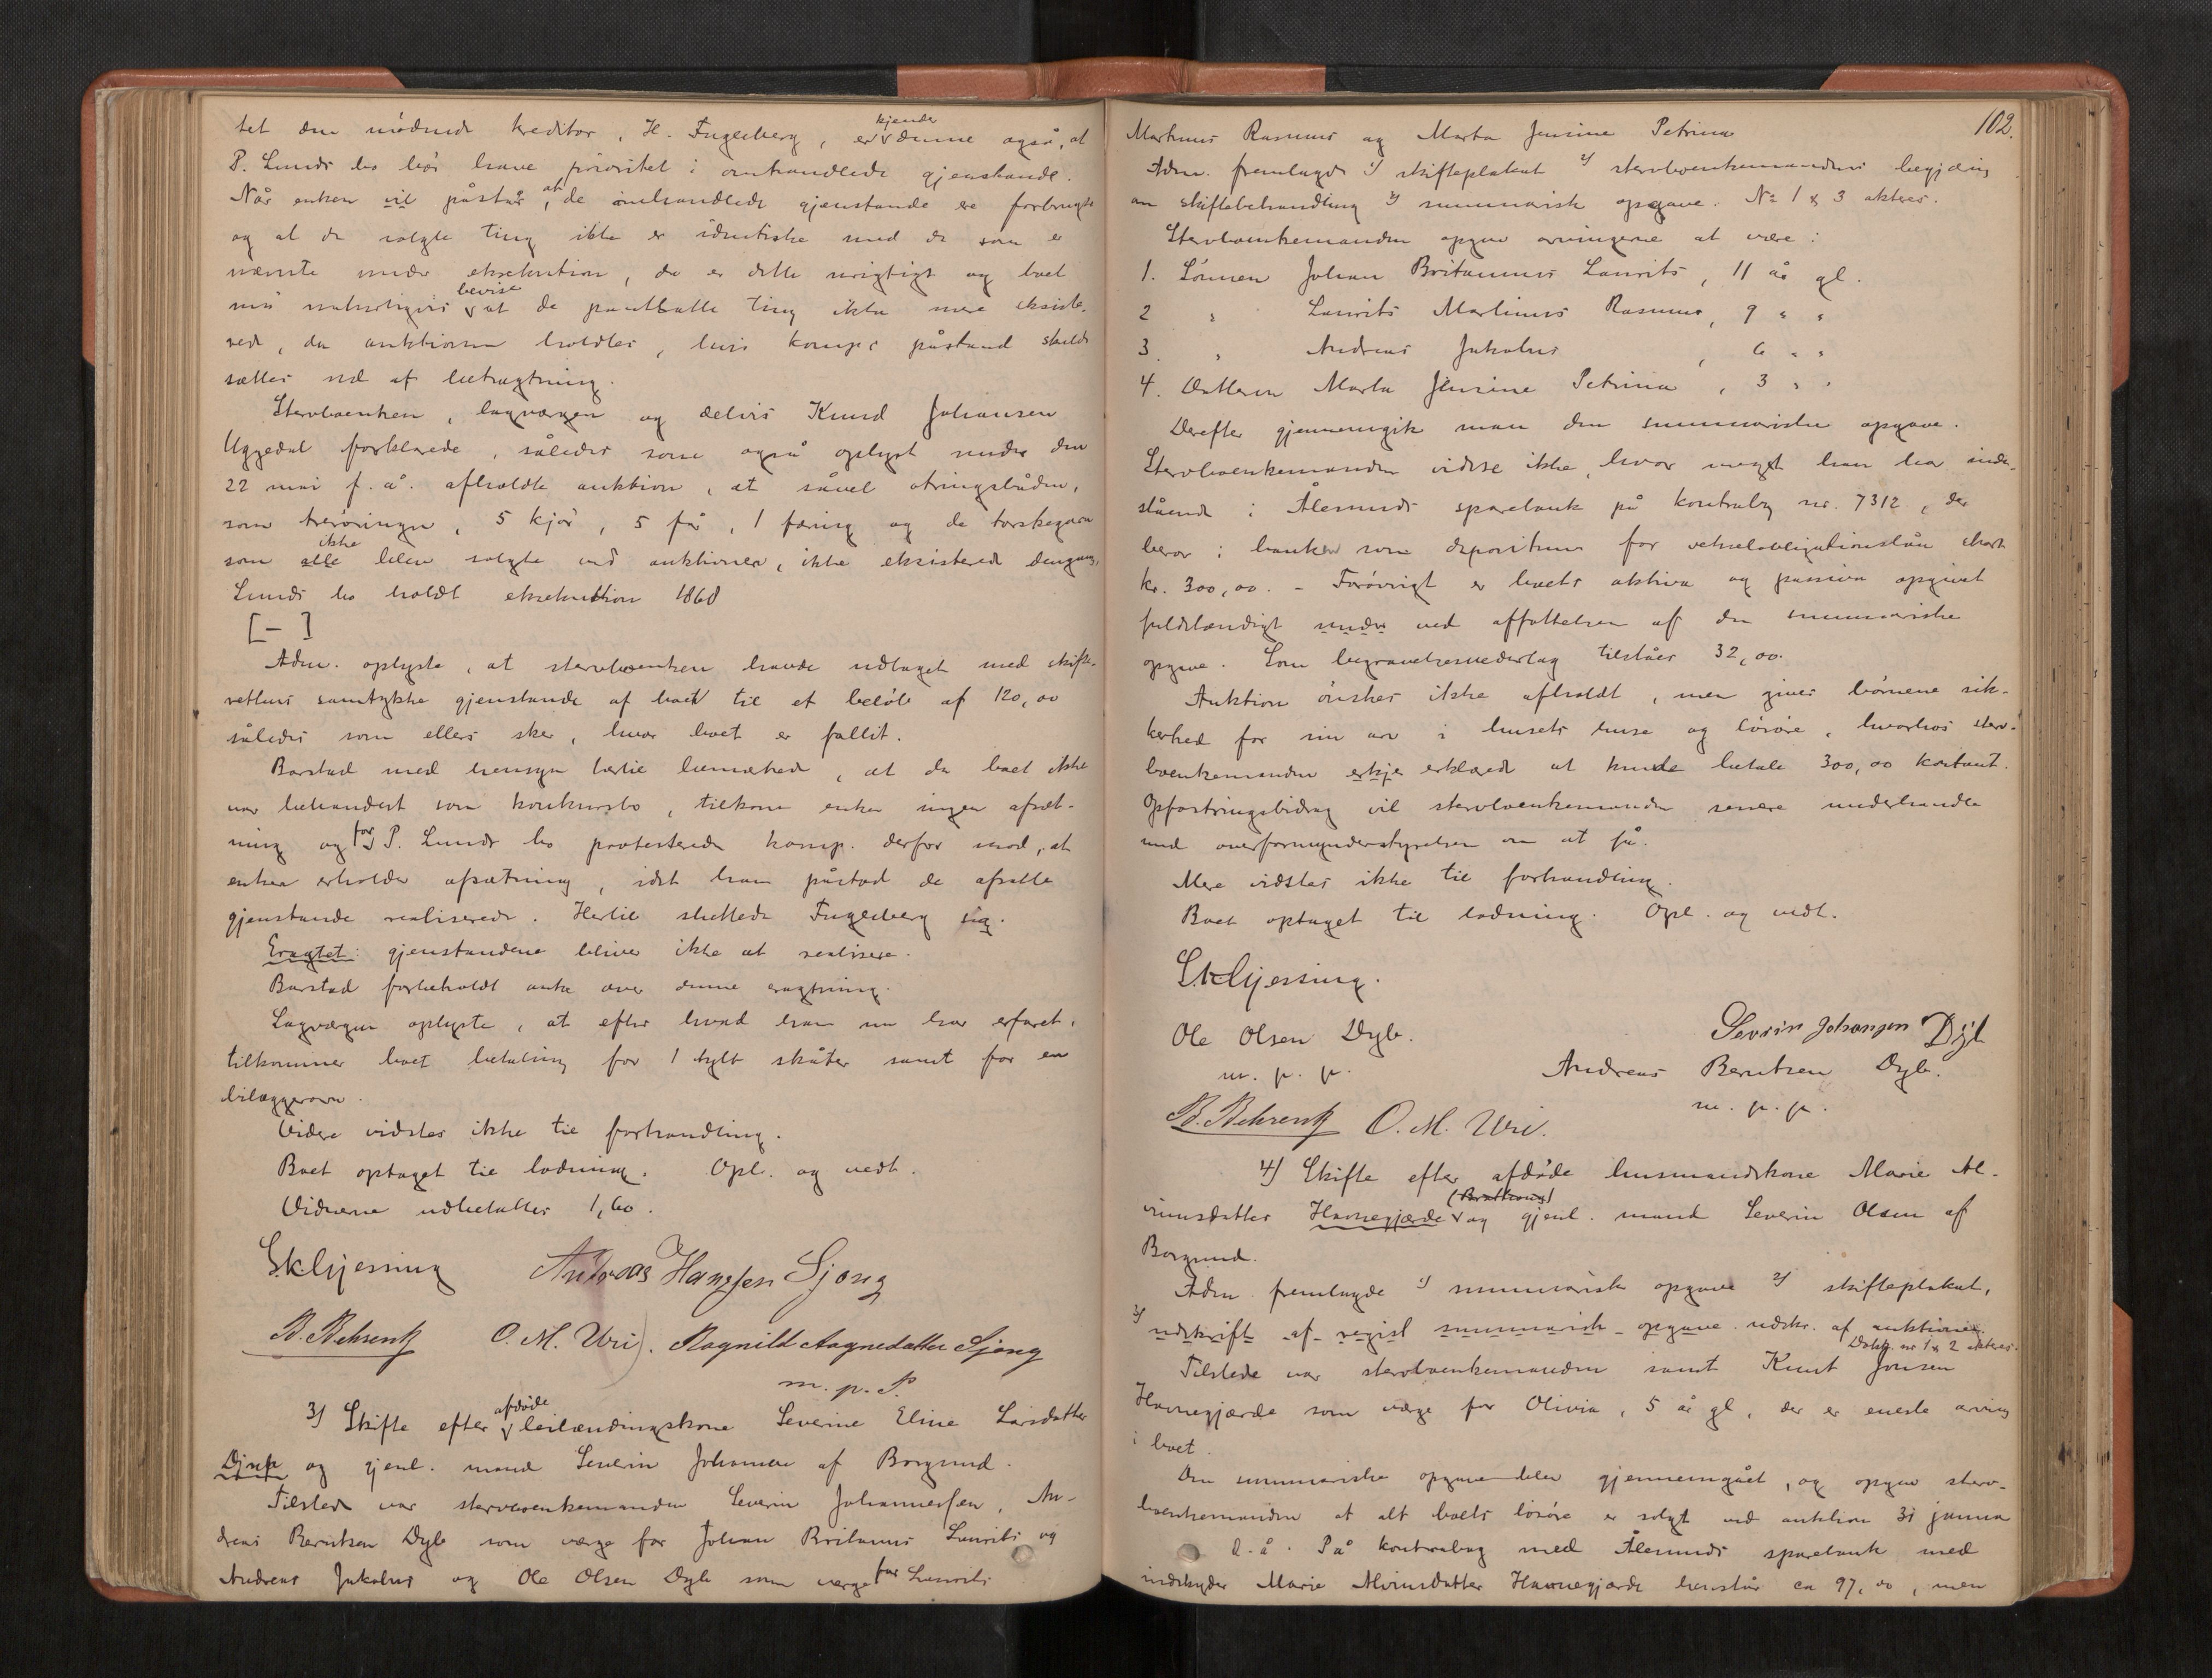 tet den mødende kreditor, H. Fugelberg, erkjender denne også, at
P. Lunds bo bør have prioritet i omhandlede gjenstande.
Når enken vil påstå, at de omhandlede gjenstande er forbrugte
og at de solgte ting ikke er identiske med de som er
nævnte under eksekution, da er dette urigtigt og boet
må naturligvis bevise at de pantsatte ting ikke mere eksiste-
rede, da auktionen holdtes, hvis komps påstand skulde
sættes ud af betragtning.
Stervboenken, lagværgen og delvis Knud Johansen
Uggedal forklarede, således som også oplyst under den
22 mai f. å. afholdte auktion, at såvel otringsbåden,
som treroringen, 5 kjør, 5 får, 1 færing og de torskegarn
som alle ikke blev solgte ved auktionen, ikke eksisterede dengang
Lunds bo holdt eksekution 1868
[-]
Adm. oplyste, at stervboenken havde udtaget med skifte-
rettens samtykke gjenstande af boet til et beløb af 120,00
således som ellers sker, hvor boet er fallit.
Barstad med hensyn hertil bemærkede, at da boet ikke
var behandlet som konkursbo, tilkom enken ingen afsæt-
ning og for P. Lunds bo protesterede komp. derfor mod, at
enken erholder afsætning, idet han påstod de afsatte
gjenstande realiserede. Hertil sluttede Fugelberg sig.
Eragtet: gjenstandene bliver ikke at realisere.
Barstad forbeholdt anke over denne eragtning.
Lagværgen oplyste, at efter hvad han nu har erfaret,
tilkommer boet betaling for 1 tylt skåter samt for en
bilæggerovn.
Videre vidstes ikke til forhandling.
Boet optaget til lodning. Opl. og vedt.
Vidnerne udbetaltes 1,60.
E. Klijessing Andreas Hanssen Sjong
B. Behrentz O. M. Uri. Ragnild Aagnedatter Sjong
m. p. P.
3) Skifte efter afdøde leilændingskone Severine Eline Larsdatter
Djup og gjenl. mand Severin Johansen af Borgund.
Tilstede var stervboenkemanden Severin Johannessen, An-
dreas Berntsen Dyb som værge for Johan Britanus Laurits og
Andreas Jakobus og Ole Olsen Dyb som værge for Laurits
102.
Martinus Rasmus og Marta Jensine Petrina
Adm. fremlagde 1) skifteplakat 2) stervboenkemandens begjæring
om skiftebehandling 3) summarisk opgave. No 1 & 3 akteres.
Stervboenkemanden opgav arvingerne at være:
1. Sønnen Johan Britannus Laurits, 11 år gl.
2 " Laurits Martinus Rasmus, 9 " "
3. " Andreas Jakobus, 6 " "
4. Datteren Marta Jensine Petrina, 3 " "
Derefter gjennemgik man den summariske opgave.
Stervboenkemanden vidste ikke, hvor meget han har inde-
stående i Ålesunds sparebank på kontrabog nr. 7312, der
beror i banken som depositum for vekselobligationslån stort
kr. 300,00. - Forøvrigt er boets aktiva og passiva opgivet
fuldstændigt under ved affattelsen af den summariske
opgave. Som begravelsesvederlag tilståes 32,00.
Auktion ønskes ikke afholdt, men gives børnene sik-
kerhed for sin arv i husets huse og løsøre, hvorhos sterv-
boenkemanden erkje erklærede at kunde betale 300,00 kontant.
Opfostringsbidrag vil stervboenkemanden senere underhandle
med overformynderstyrelsen om at få.
Mere vidstes ikke til forhandling.
Boet optaget til lodning. Opl. og vedt.
E. Klijessing.
Ole Olsen Dyb. Sevrin Johansen Dyb
m. p. p. Andreas Berntsen Dyb.
m. p. p.
B. Behrentz O. M. Uri.
4) Skifte efter afdøde husmandskone Marie Al-
vinusdatter Havnegjærde og gjenl. mand Severin Olsen af
Borgund.
Adm. fremlagde 1) summarisk opgave 2) skifteplakat,
3) udskrift af regist summarisk opgave udskr. af auktionen.
Dokts. nr 1 & 2 akteres.
Tilstede var stervboenkemanden samt Knut Jonsen
Havnegjærde som værge for Olivia, 5 år gl, der er eneste arving
i boet.
Den summariske opgave blev gjennemgået, og opgav sterv-
boenkemanden at alt boets løsøre er solgt ved auktion 31 januar
d. å. På kontrabog med Ålesunds sparebank med
indskyder Marie Alvinusdatter Havnegjærde henstår ca 97,00, men